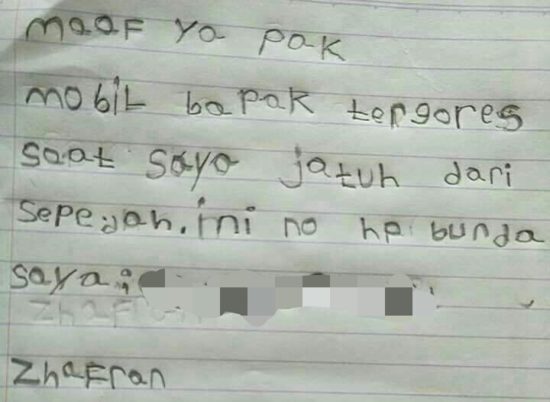 maaf ya pak
mobil bapak tergores
saat saya jatuh dari
sepedah. ini no hp bunda
saya :
Zhafran
Zhafran